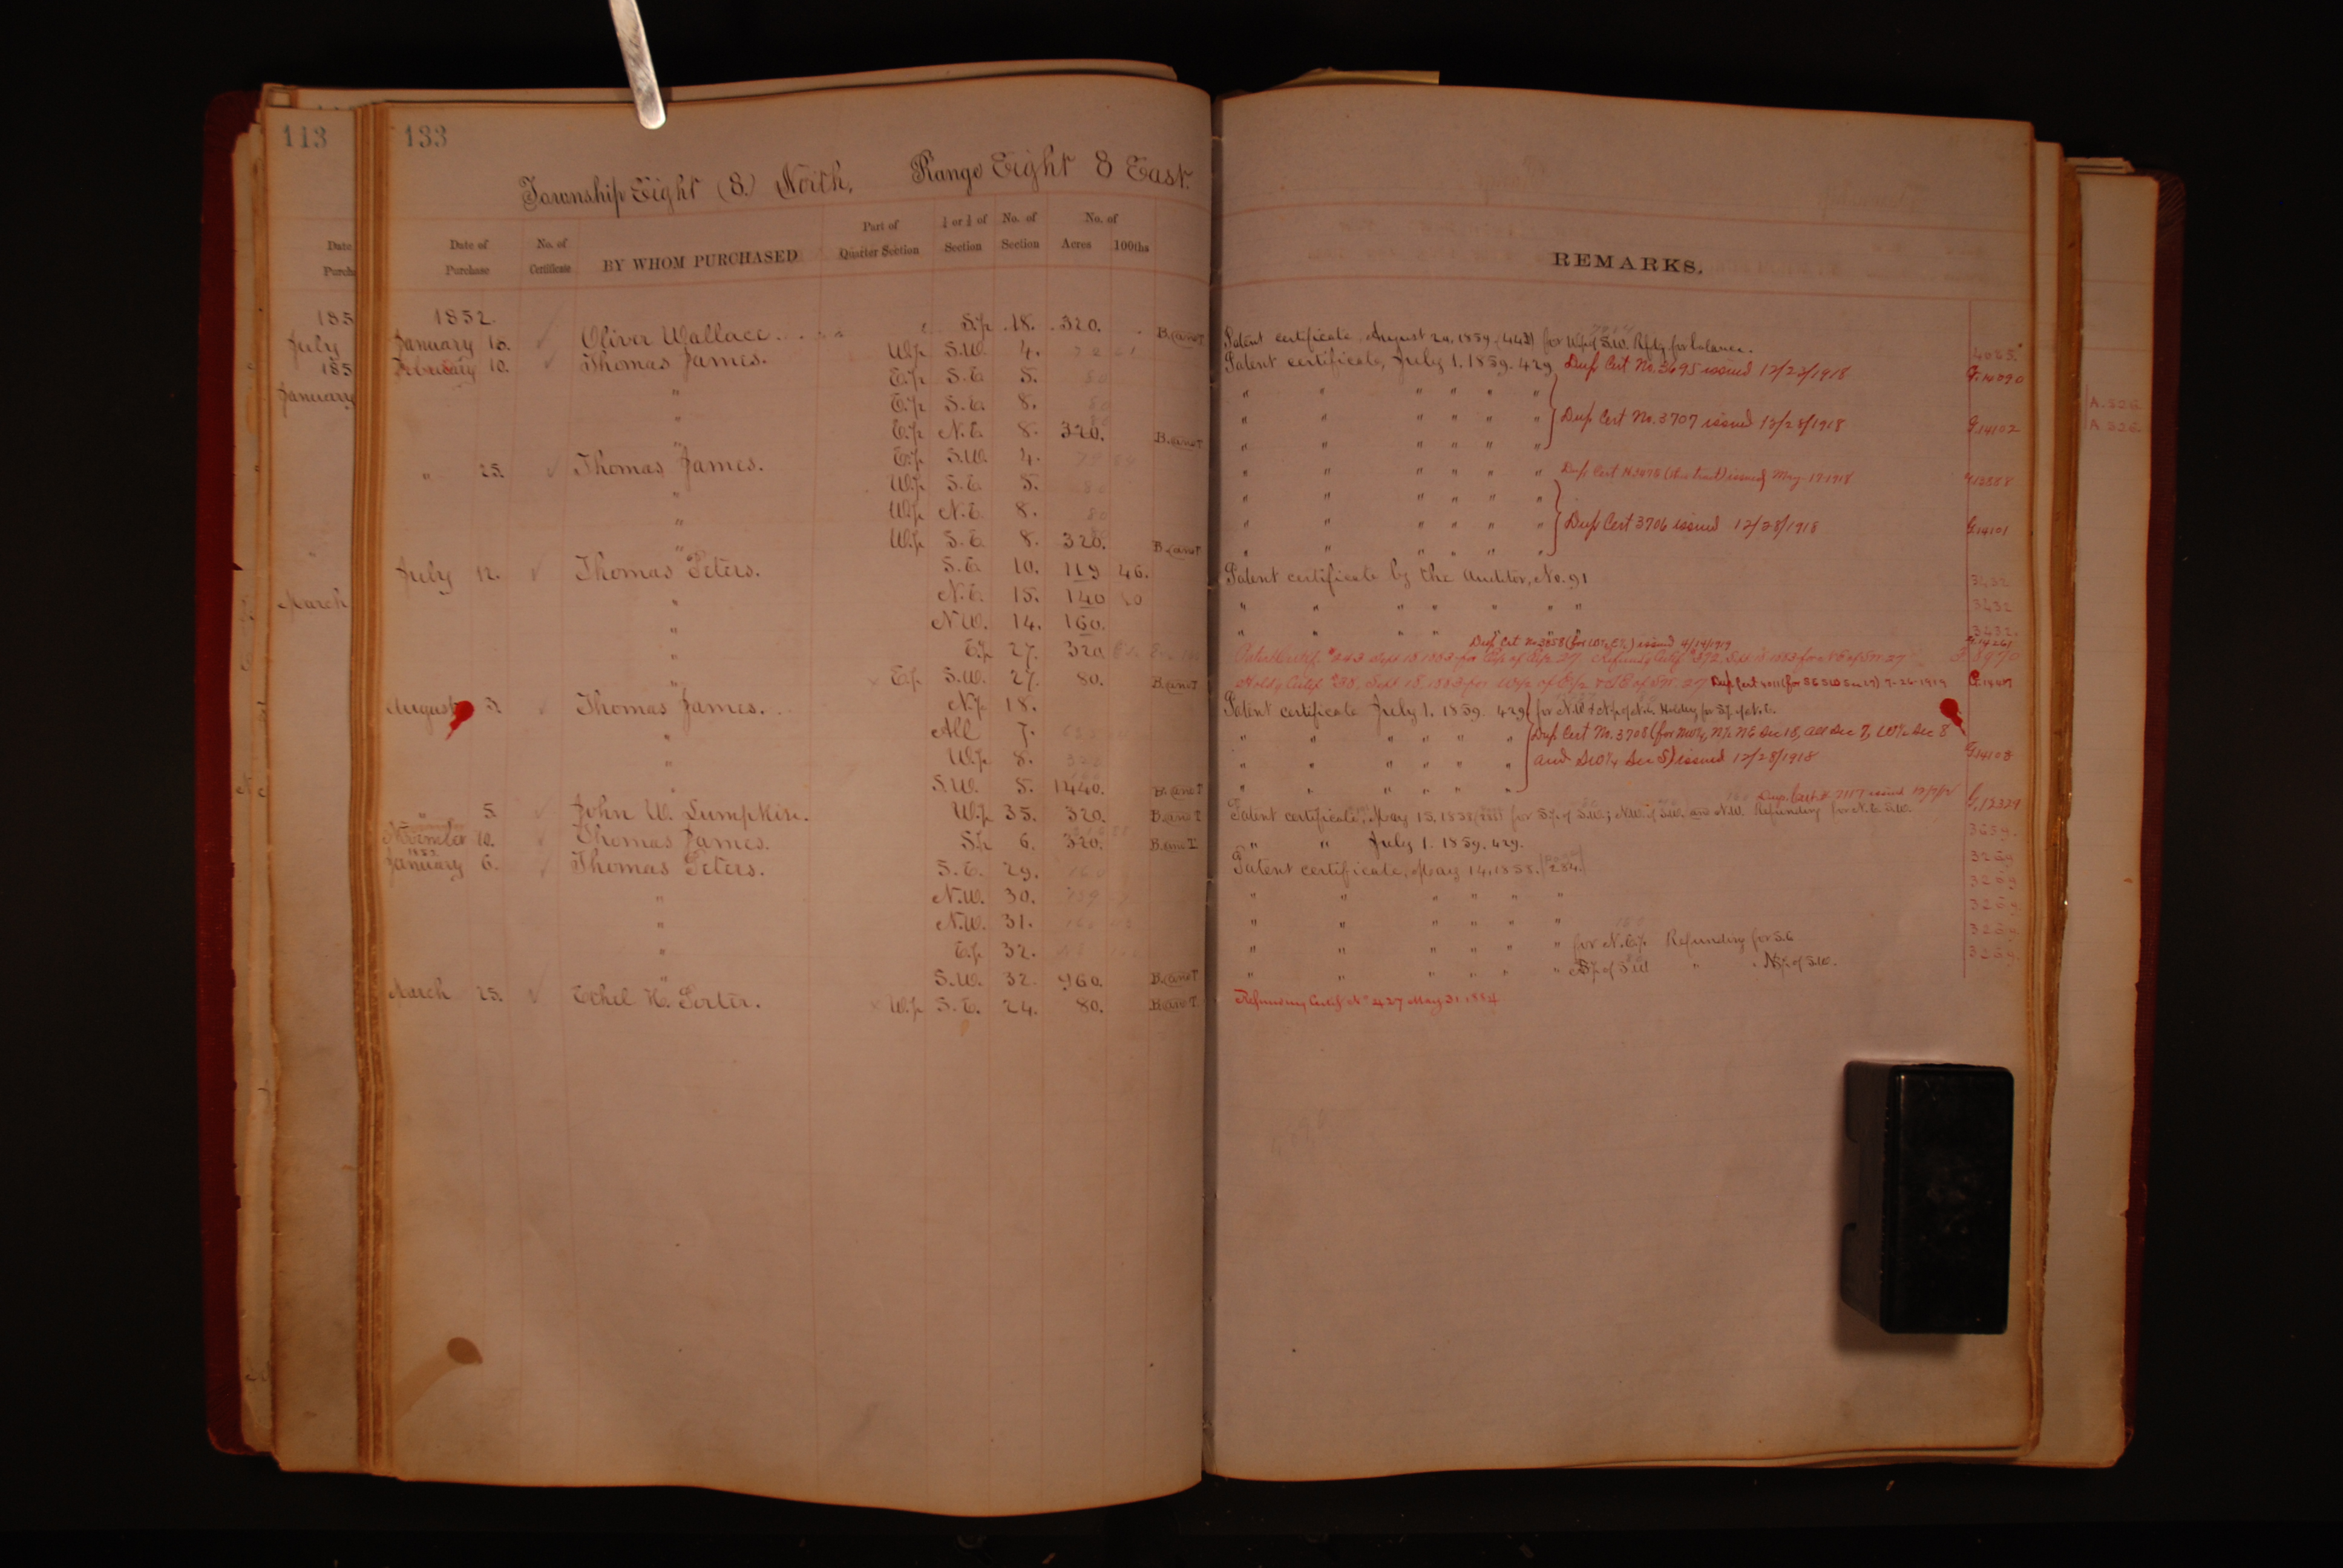 113
133
Township Eight (8.) North, Range Eight 8 East.
Date
Purch
Date of Purchase
No. of Certificate
BY WHOM PURCHASED
Part of Quarter Section
½ or ¼ of Section
No. of Section
No. of Acres 100ths
REMARKS.
185
July
185
January
March
1852.
January 16. Oliver Wallace. S.½ 18. 320. B. and T Patent certificate, August 24, 1859 (442) for W½ of S.W. Rfdg for balance. 4025.
February 10. Thomas James. W.½ S.W. 4. Patent certificate, July 1, 1859. 429 Dup Cert No. 3695 issued 12/23/1918 G.14090
E.½ S.E. 5. 80 " " " " " "
" E.½ S.E. 8. 80 " " " " " " Dup Cert No. 3707 issued 12/28/1918 G.14102
" E.½ N.E. 8. 320. B. and T " " " " " "
" 25. Thomas James. E.½ S.W. 4. " " " " " " Dup Cert issued May 17 1918
" W.½ S.E. 5. " " " " " "
" W.½ N.E. 8. 80 " " " " " " Dup Cert 3706 issued 12/28/1918 G.14101
" W.½ S.E. 8. 320. B. and T " " " " " "
July 12. Thomas Peters. S.E. 10. 119 46. Patent certificate by the Auditor, No. 91 3432
" N.E. 15. 140 " " " " " " " 3432
" N.W. 14. 160. " " " " 3432.
Dup Cert No. 3858 (for W½ E½) issued 4/14/1919 G.14261
" E.½ 27. 320 Patent Certif. #243 Sept 18 1883 for E½ of E½ 27. Refundg Certif #372, Sept 18 1883 for
" E.½ S.W. 27. 80. B. and T Holdg Certif #38, Sept 18, 1883 for W½ of E½ & SE of SW. 27 Dup Cert 4011 (for SE SW Sec 27) 7-26-1919
August 3. Thomas James. N.½ 18. Patent certificate July 1. 1859. 429 for N.W & N½ of N.E. Holdg for S½ of N.E.
" All 7. " " " " " " Dup Cert No. 3708 (for NW¼, N½ NE Sec 18, all Sec 7, W½ Sec 8
" W.½ 8. " " " " " " and SW¼ Sec 5) issued 12/28/1918 G.14103
" S.W. 5. 1440. B. and T " " " " " "
" 5. John W. Lumpkin. W.½ 35. 320. B. and T Patent certificate, May 15, 1858 for S½ of S.W.; N.W. of S.W. and N.W. Refunding for N.E. S.W. G.12329
November 10. Thomas James. S.½ 6. 320. B. and T " " July 1. 1859. 429. 3659.
1853.
January 6. Thomas Peters. S.E. 29. Patent certificate, May 14, 1858. (284.) 3269
" N.W. 30. " " " " " " 3269
" N.W. 31. " " " " " " 3269
" E.½ 32. " " " " " " for N.E¼ Refunding for S.E 3269
" S.W. 32. 960. B. and T " " " " " " S½ of S.W " N½ of S.W. 3269.
March 25. Ethel H. Porter. W.½ S.E. 24. 80. B. and T Refunding Certif No 427 May 31, 1884
A.326
A 326